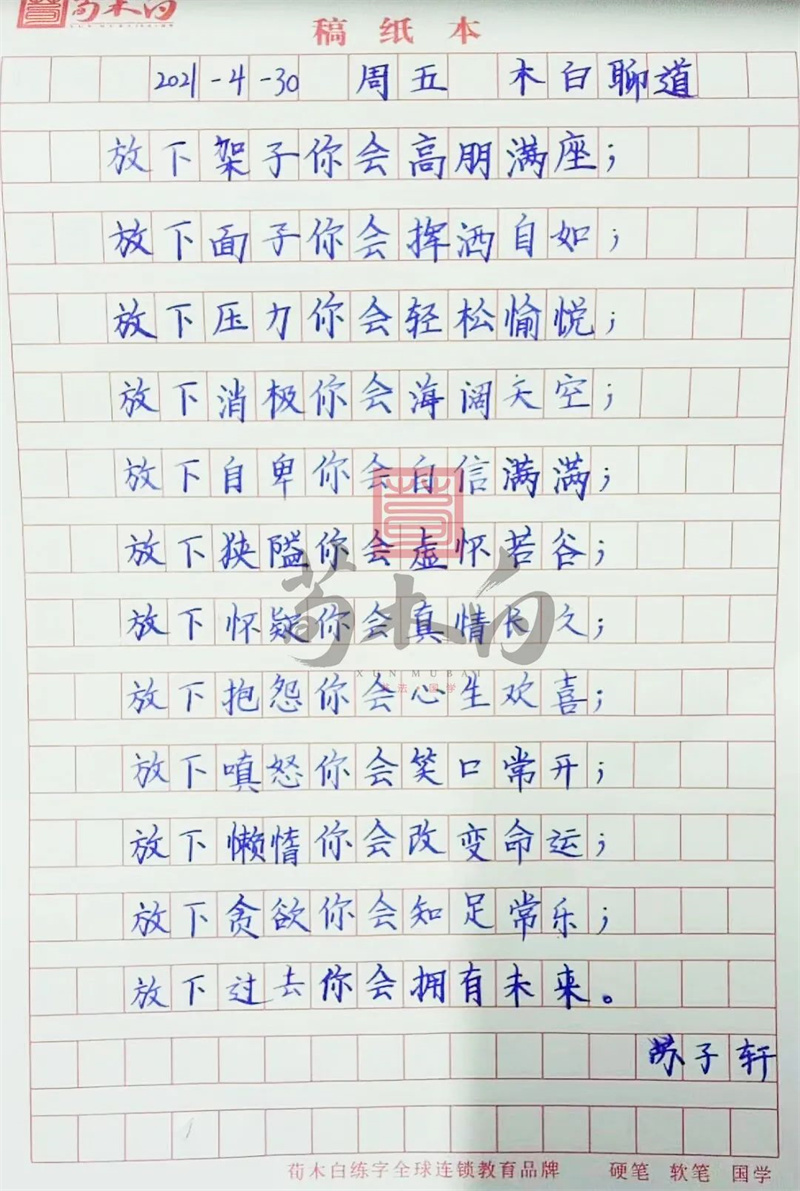 荀木白
稿纸本
2021-4-30 周五 木白聊道
放下架子你会高朋满座；
放下面子你会挥洒自如；
放下压力你会轻松愉悦；
放下消极你会海阔天空；
放下自卑你会自信满满；
放下狭隘你会虚怀若谷；
荀木白
放下怀疑你会真情长久；
XUN MUBAI
放下抱怨你会心生欢喜；
放下嗔怒你会笑口常开；
放下懒惰你会改变命运；
放下贪欲你会知足常乐；
放下过去你会拥有未来。
苏子轩
荀木白练字全球连锁教育品牌 硬笔 软笔 国学